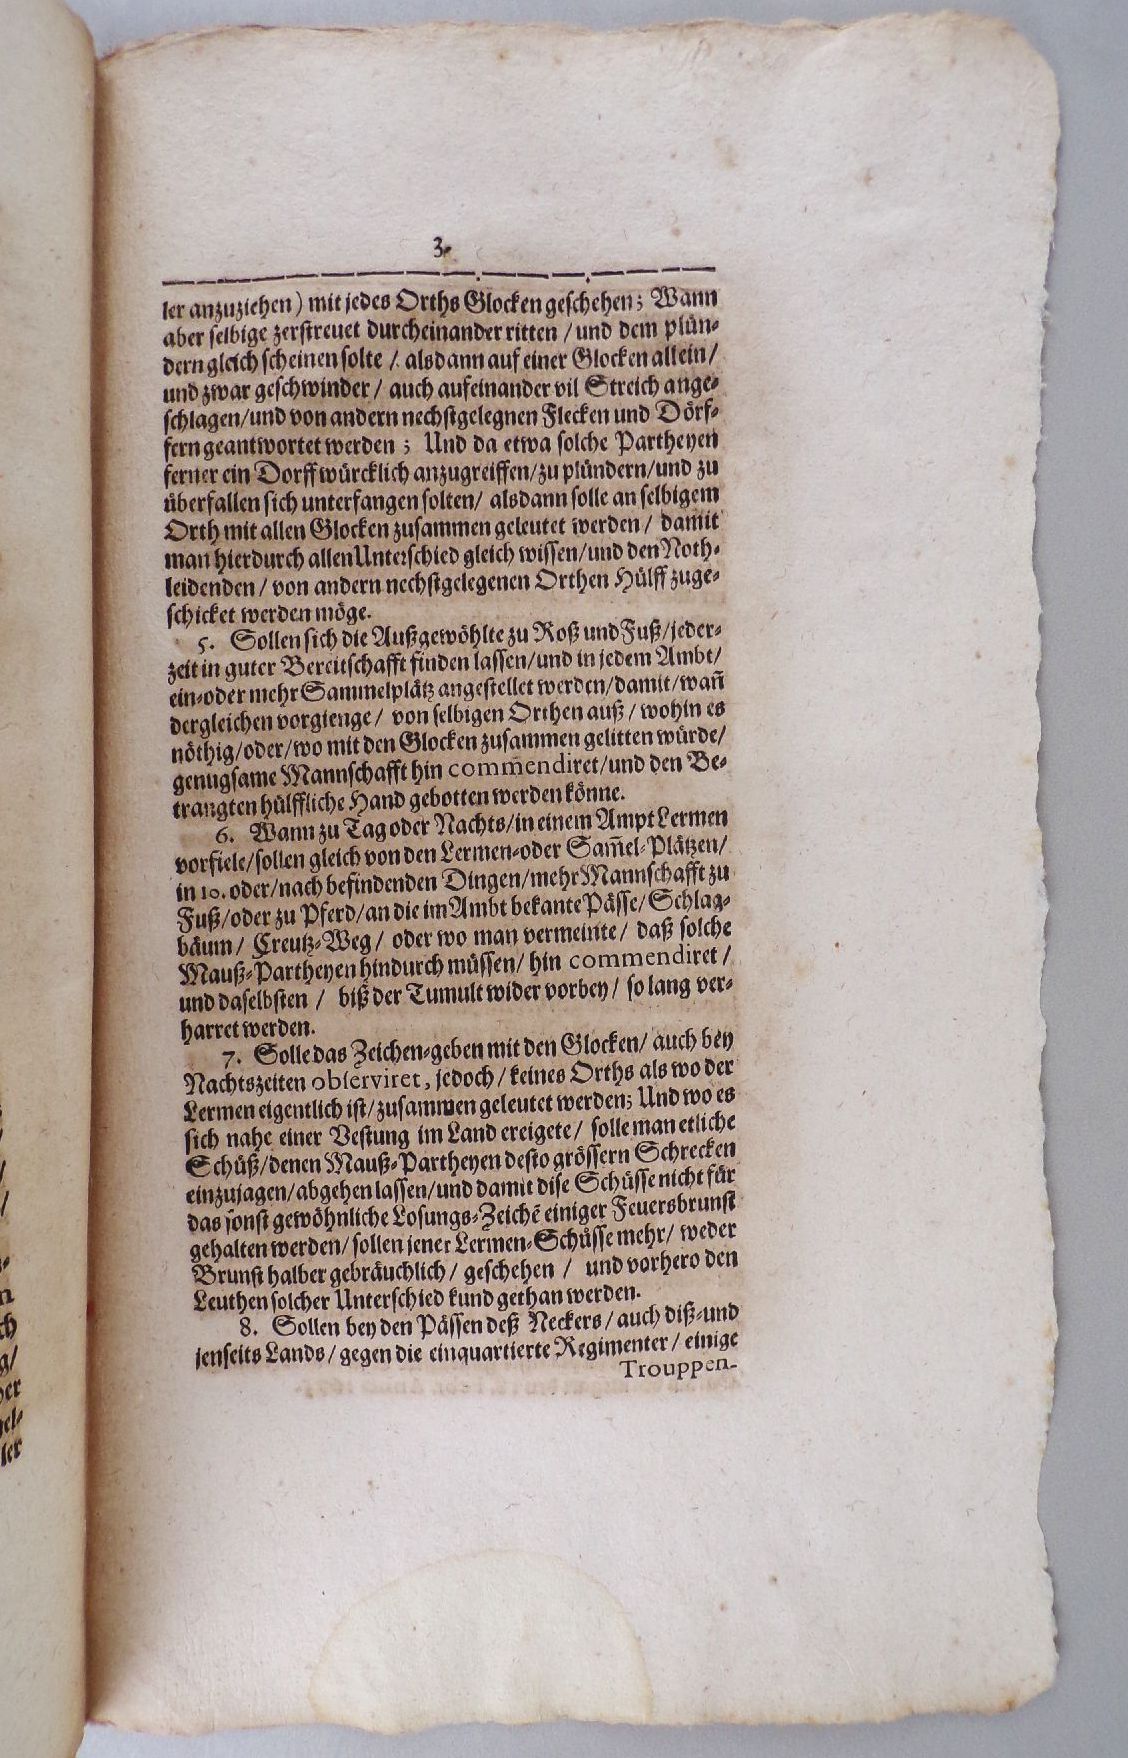 3.
ler anzuziehen) mit jedes Orths Glocken geschehen; Wann
aber selbige zerstreuet durcheinander ritten / und dem plün-
dern gleich scheinen solte / alsdann auf einer Glocken allein /
und zwar geschwinder / auch aufeinander vil Streich ange-
schlagen / und von andern nechstgelegnen Flecken und Dörf-
fern geantwortet werden ; Und da etwa solche Partheyen
ferner ein Dorff würcklich anzugreiffen / zu plündern / und zu
überfallen sich unterfangen solten / alsdann solle an selbigem
Orth mit allen Glocken zusammen geleutet werden / damit
man hierdurch allen Unterschied gleich wissen / und den Noth-
leidenden / von andern nechstgelegenen Orthen Hülff zuge-
schicket werden möge.
5. Sollen sich die Außgewöhlte zu Roß und Fuß / jeder-
zeit in guter Bereitschafft finden lassen / und in jedem Ambt /
ein- oder mehr Sammelplätz angestellet werden / damit / wañ
dergleichen vorgienge / von selbigen Orthen auß / wohin es
nöthig / oder / wo mit den Glocken zusammen gelitten würde /
genugsame Mannschafft hin com̃endiret / und den Be-
trangten hülffliche Hand gebotten werden könne.
6. Wann zu Tag oder Nachts / in einem Ampt Lermen
vorfiele / sollen gleich von den Lermen- oder Sam̃el-Plätzen /
in 10. oder / nach befindenden Dingen / mehr Mannschafft zu
Fuß / oder zu Pferd / an die im Ambt bekante Pässe / Schlag-
bäum / Creutz-Weg / oder wo man vermeinte / daß solche
Mauß-Partheyen hindurch müssen / hin commendiret /
und daselbsten / biß der Tumult wider vorbey / so lang ver-
harret werden.
7. Solle das Zeichen-geben mit den Glocken / auch bey
Nachtszeiten observiret, jedoch / keines Orths als wo der
Lermen eigentlich ist / zusammen geleutet werden; Und wo es
sich nahe einer Vestung im Land ereigete / solle man etliche
Schüß / denen Mauß-Partheyen desto grössern Schrecken
einzujagen / abgehen lassen / und damit dise Schüsse nicht für
das sonst gewöhnliche Losungs-Zeichẽ einiger Feuersbrunst
gehalten werden / sollen jener Lermen-Schüsse mehr / weder
Brunst halber gebräuchlich / geschehen / und vorhero den
Leuthen solcher Unterschied kund gethan werden.
8. Sollen bey den Pässen deß Neckers / auch diß- und
jenseits Lands / gegen die einquartierte Regimenter / einige
Trouppen-